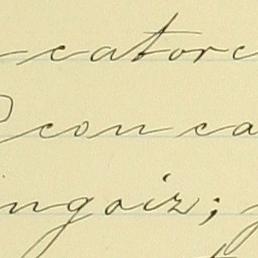 catorc
con ca
ngoiz;